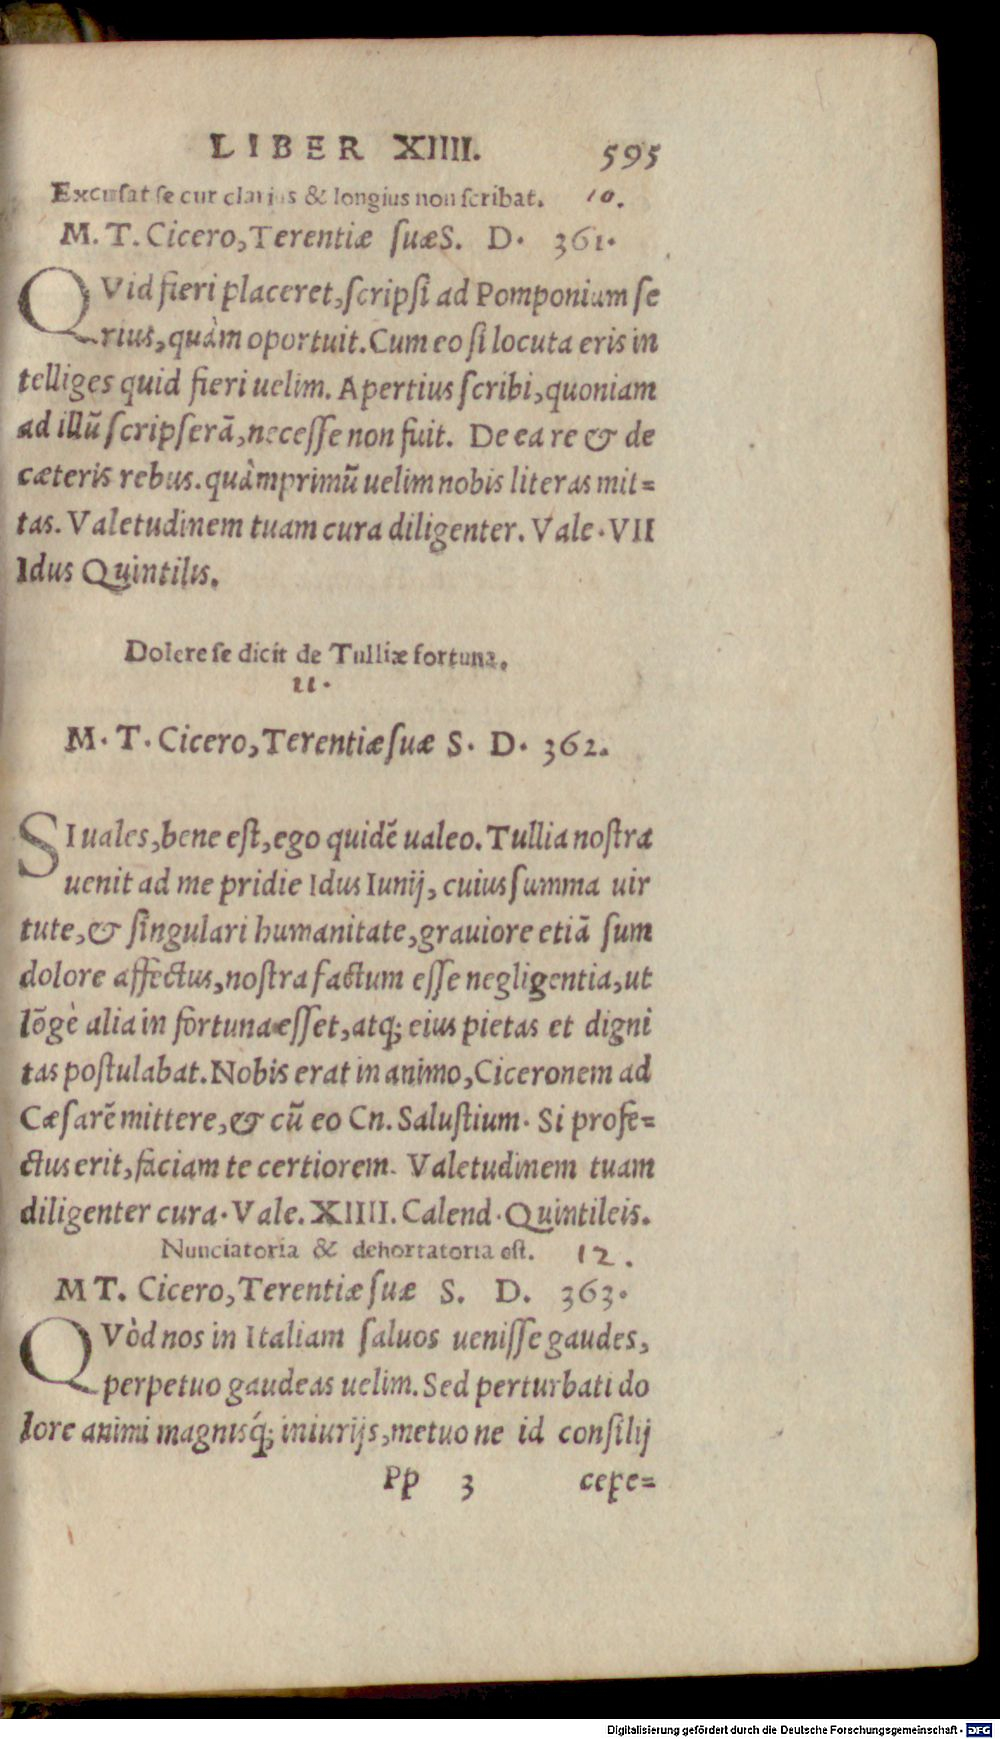 LIBER XIIII. 595
Excusat se cur clarius & longius non scribat. 10.
M. T. Cicero, Terentiæ suæ S. D. 361.
QVid fieri placeret, scripsi ad Pomponium se
rius, quàm oportuit. Cum eo si locuta eris in
telliges quid fieri uelim. Apertius scribi, quoniam
ad illũ scripserã, necesse non fuit. De ea re & de
cæteris rebus. quàmprimũ uelim nobis literas mit=
tas. Valetudinem tuam cura diligenter. Vale. VII
Idus Quintilis.
Dolere se dicit de Tulliæ fortuna.
11.
M. T. Cicero, Terentiæ suæ S. D. 362.
SI uales, bene est, ego quidẽ ualeo. Tullia nostra
uenit ad me pridie Idus Iunij, cuius summa uir
tute, & singulari humanitate, grauiore etiã sum
dolore affectus, nostra factum esse negligentia, ut
lõgè alia in fortuna esset, atq; eius pietas et digni
tas postulabat. Nobis erat in animo, Ciceronem ad
Cæsarẽ mittere, & cũ eo Cn. Salustium. Si profe=
ctus erit, faciam te certiorem. Valetudinem tuam
diligenter cura. Vale. XIIII. Calend. Quintileis.
Nunciatoria & dehortatoria est. 12.
M T. Cicero, Terentiæ suæ S. D. 363.
QVòd nos in Italiam saluos uenisse gaudes,
perpetuo gaudeas uelim. Sed perturbati do
lore animi magnisq́; iniurijs, metuo ne id consilij
Pp 3 cepe=
Digitalisierung gefördert durch die Deutsche Forschungsgemeinschaft - DFG